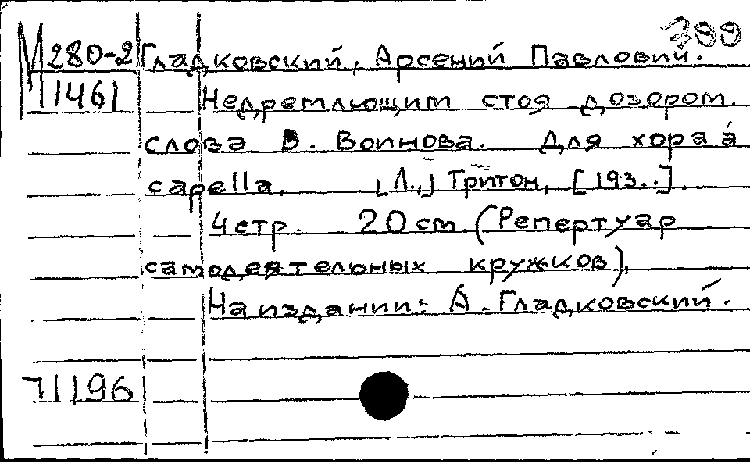 399
М280-2 Гладковский, Арсений Павлович.
11461 Недремлющим стоя дозором
слова В. Воинова. Для хора a
capella. [Л.,] Тритон, [193..].
4 стр. 20 cm. (Репертуар
самодеятельных кружков).
На издании: А. Гладковский.
71196